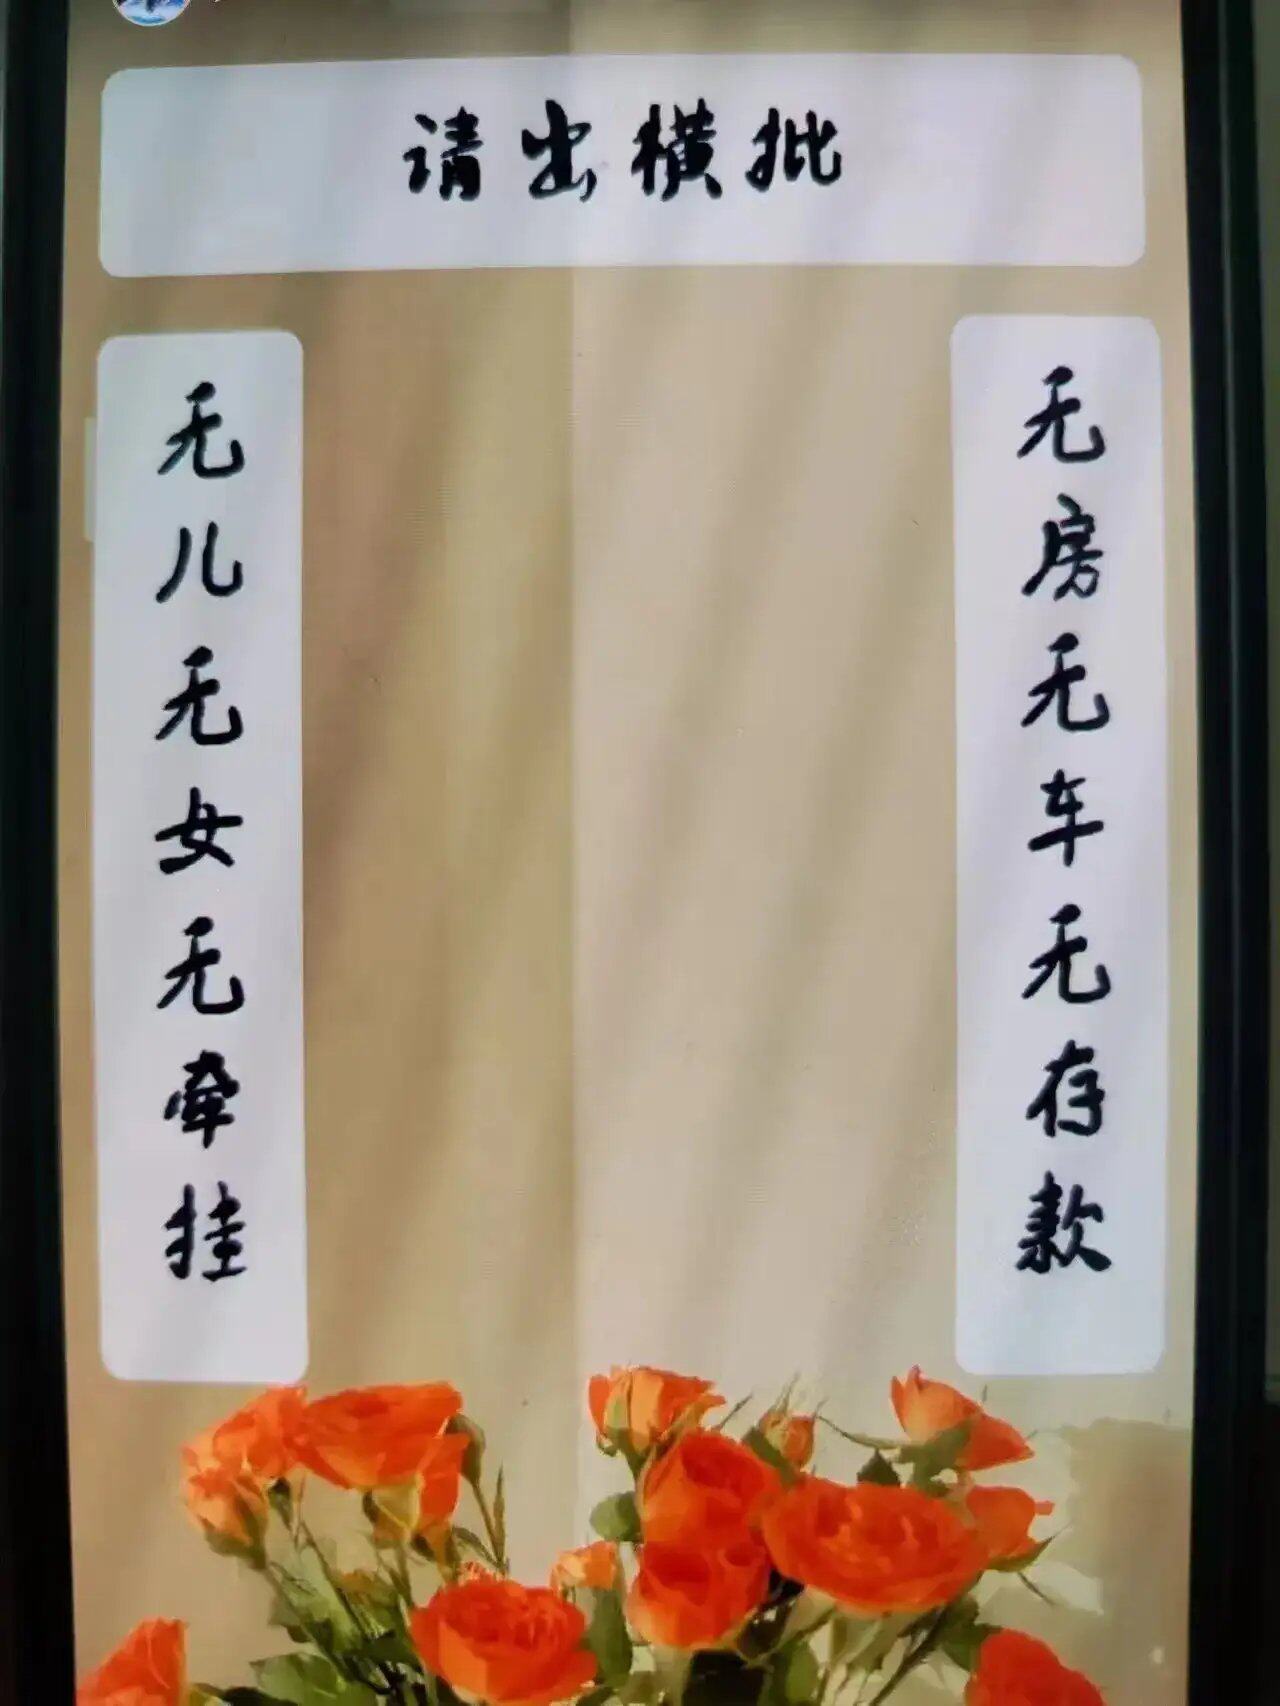 请出横批
无房无车无存款
无儿无女无牵挂